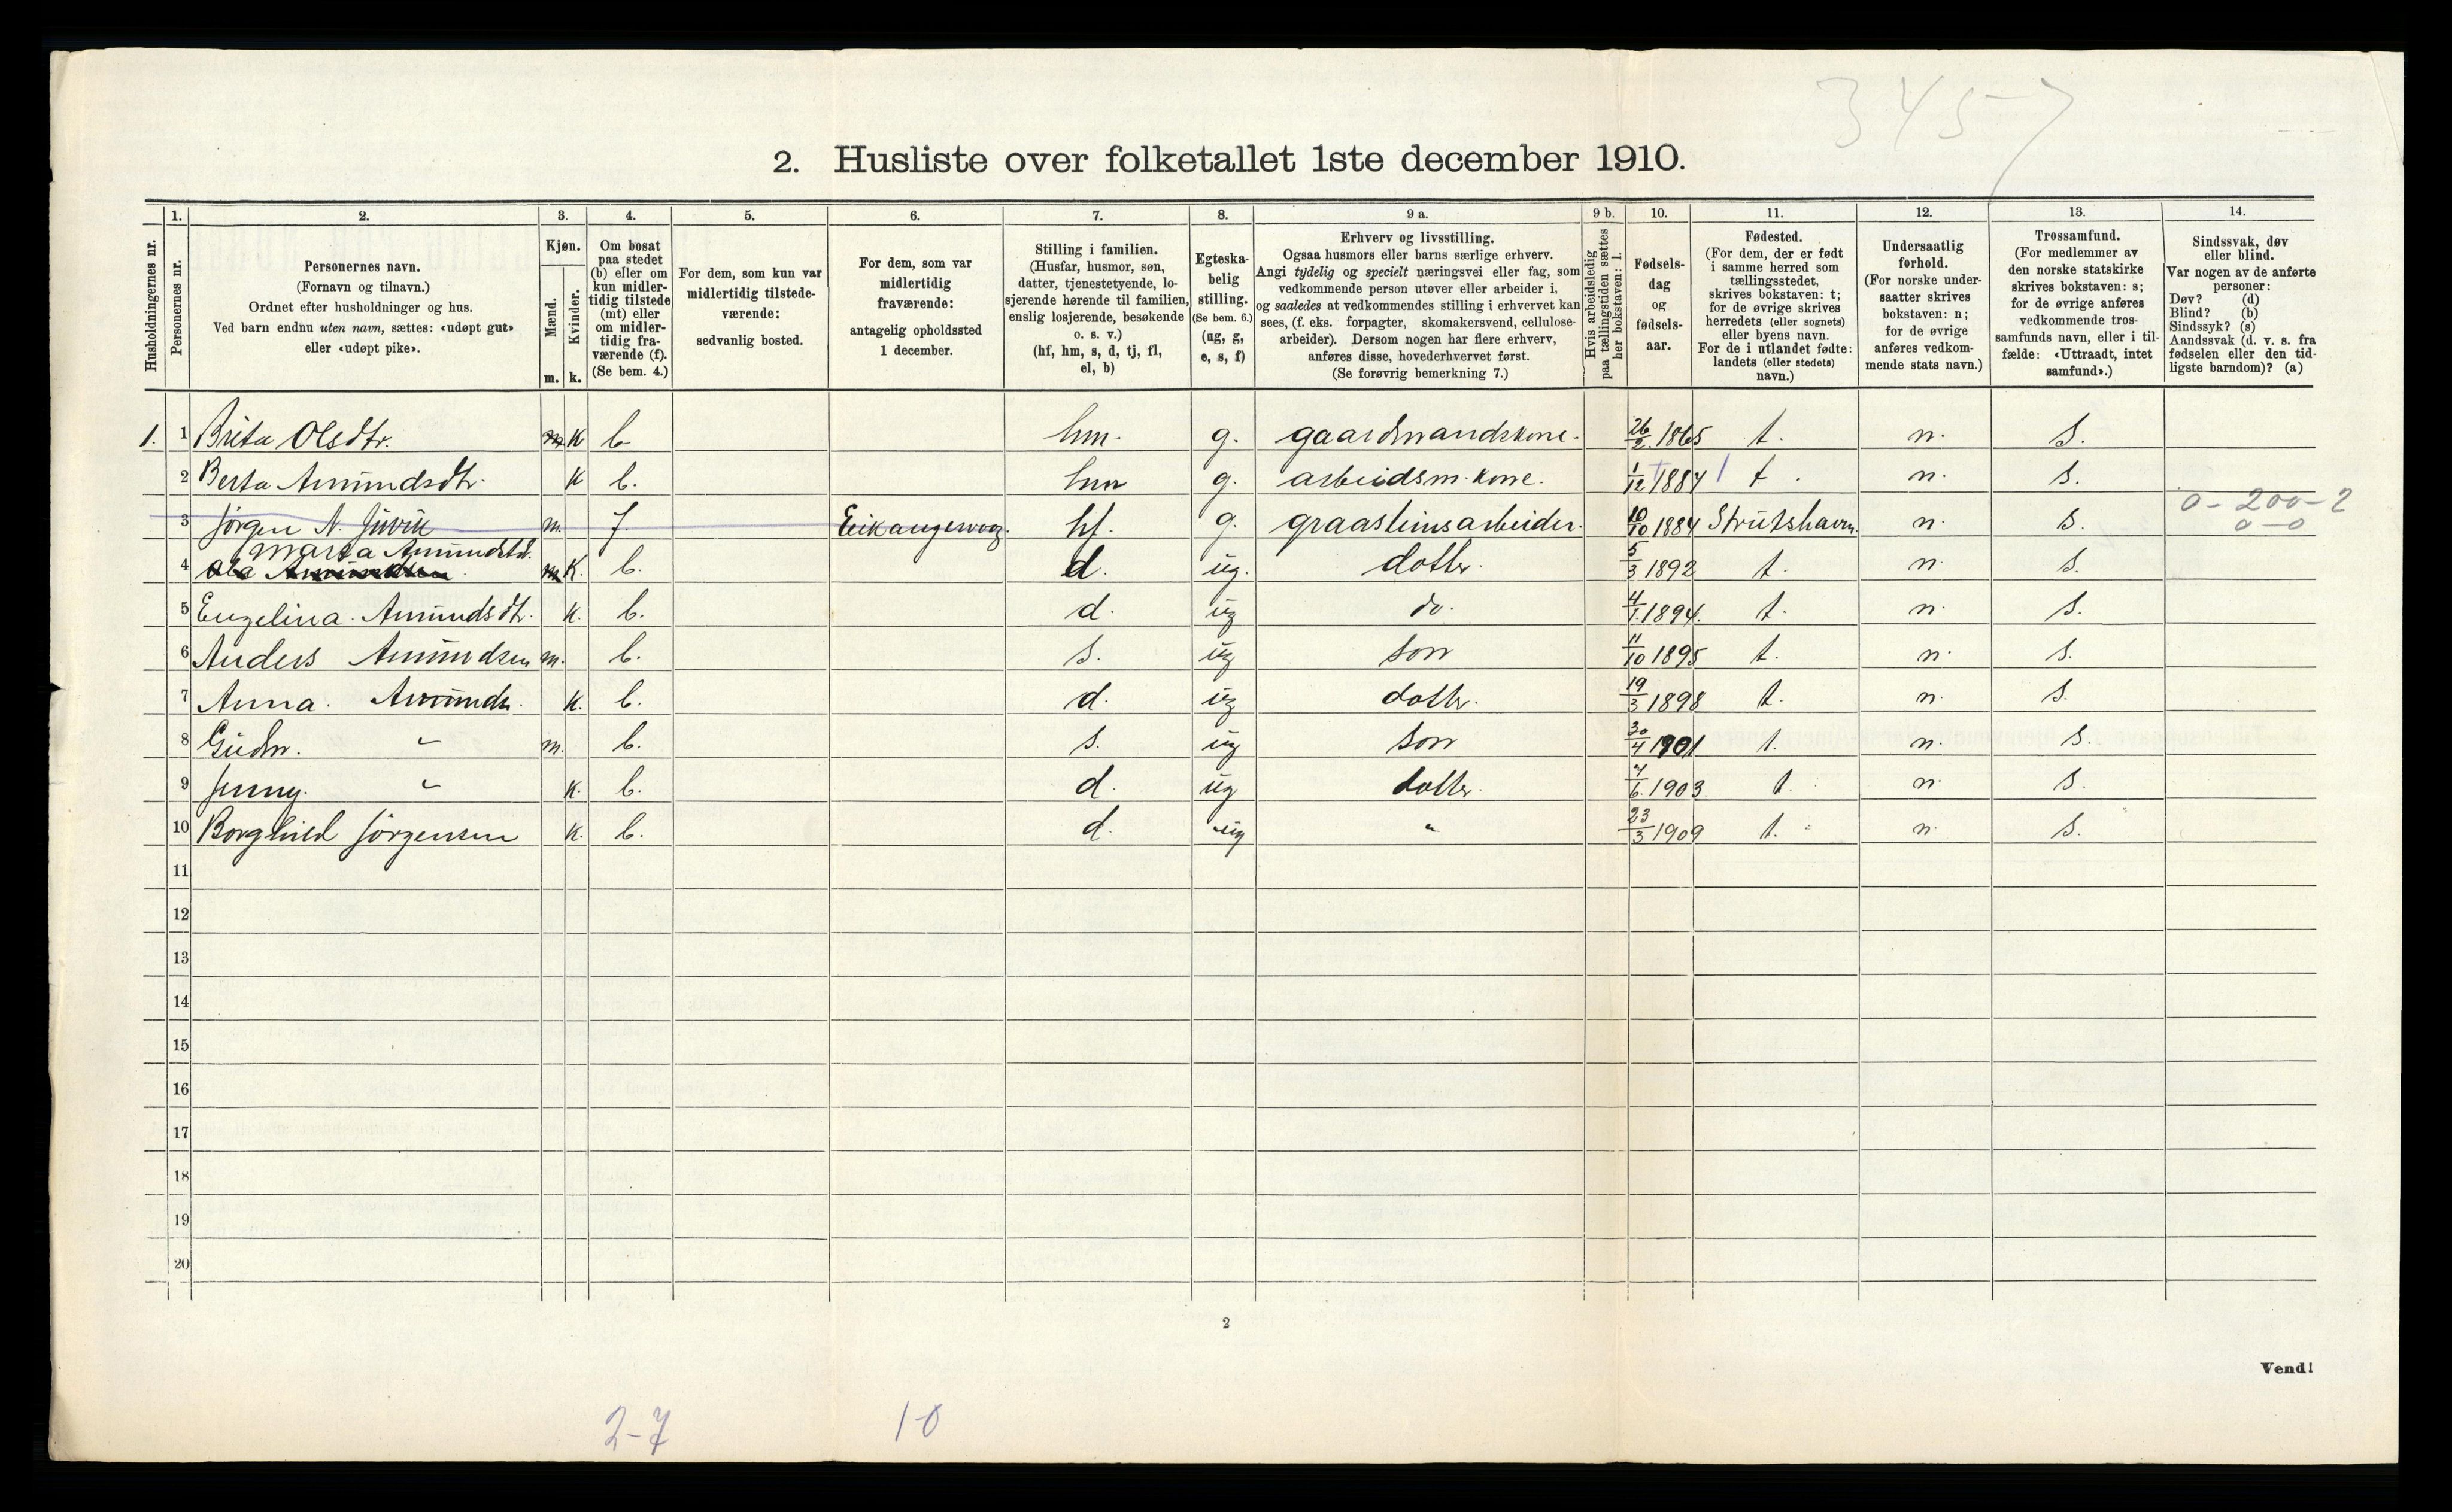 3457
2. Husliste over folketallet 1ste december 1910.
Husholdningernes nr.
1.
Personernes nr.
2.
Personernes navn.
(Fornavn og tilnavn.)
Ordnet efter husholdninger og hus.
Ved barn endnu uten navn, sættes: «udøpt gut»
eller «udøpt pike».
3.
Kjøn.
Mænd.
Kvinder.
m. k.
4.
Om bosat
paa stedet
(b) eller om
kun midler-
tidig tilstede
(mt) eller
om midler-
tidig fra-
værende (f).
(Se bem. 4.)
5.
For dem, som kun var
midlertidig tilstede-
værende:
sedvanlig bosted.
6.
For dem, som var
midlertidig
fraværende:
antagelig opholdssted
1 december.
7.
Stilling i familien.
(Husfar, husmor, søn,
datter, tjenestetyende, lo-
sjerende hørende til familien,
enslig losjerende, besøkende
o. s. v.)
(hf, hm, s, d, tj, fl,
el, b)
8.
Egteska-
belig
stilling.
(Se bem. 6.)
(ug, g,
e, s, f)
9 a.
Erhverv og livsstilling.
Ogsaa husmors eller barns særlige erhverv.
Angi tydelig og specielt næringsvei eller fag, som
vedkommende person utøver eller arbeider i,
og saaledes at vedkommendes stilling i erhvervet kan
sees, (f. eks. forpagter, skomakersvend, cellulose-
arbeider). Dersom nogen har flere erhverv,
anføres disse, hovederhvervet først.
(Se forøvrig bemerkning 7.)
9 b.
Hvis arbeidsledig
paa tællingstiden sættes
her bokstaven: l.
10.
Fødsels-
dag
og
fødsels-
aar.
11.
Fødested.
(For dem, der er født
i samme herred som
tællingsstedet,
skrives bokstaven: t;
for de øvrige skrives
herredets (eller sognets)
eller byens navn.
For de i utlandet fødte:
landets (eller stedets)
navn.)
12.
Undersaatlig
forhold.
(For norske under-
saatter skrives
bokstaven: n;
for de øvrige
anføres vedkom-
mende stats navn.)
13.
Trossamfund.
(For medlemmer av
den norske statskirke
skrives bokstaven: s;
for de øvrige anføres
vedkommende tros-
samfunds navn, eller i til-
fælde: «Uttraadt, intet
samfund».)
14.
Sindssvak, døv
eller blind.
Var nogen av de anførte
personer:
Døv? (d)
Blind? (b)
Sindssyk? (s)
Aandssvak (d. v. s. fra
fødselen eller den tid-
ligste barndom)? (a)
1. 1 Brita Olsdtr. m K b hm. g. gaardmandskone. 26/2 1865 t. n. s.
2 Berta Amundsdtr. K b. hm g. arbeidsm. kone. 1/12 1884 t. n. s.
3 Jørgen N. Juvik m. f. Eikangervaag. hf. g. graasteinsarbeider. 10/10 1884 Strutshavn. n. s. 0-200-2
0-0
Marta Amundstd.
4 Ola Amundsen m K. b. d. ug. dotter. 5/3 1892 t. n. s.
5 Engelina Amundsdtr. K. b. d. ug do. 4/1 1894. t. n. s.
6 Anders Amundsen m. b. s. ug son 11/10 1895 t. n. s.
7 Anna. Amunds. K. b. d. ug dotter. 19/3 1898 t. n. s.
8 Gudm. " m. b. s. ug son 30/4 1901 t. n. s.
9 Jenny. " K. b. d. ug dotter. 7/6 1903. t. n. s.
10 Borghild Jørgensen K. b. d. ug " 23/3 1909 t. n. s.
11
12
13
14
15
16
17
18
19
20
2
Vend!
2-7 10